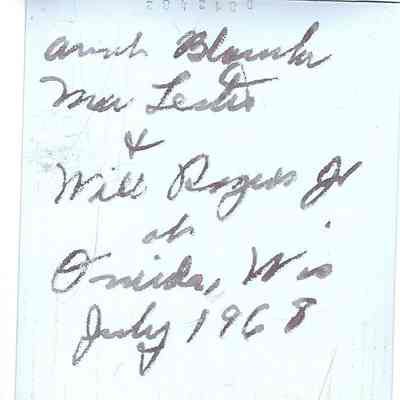 Aunt Blanche
Mrs Leslie
&
Will Rogers Jr
at
Oneida, Wis
July 1968